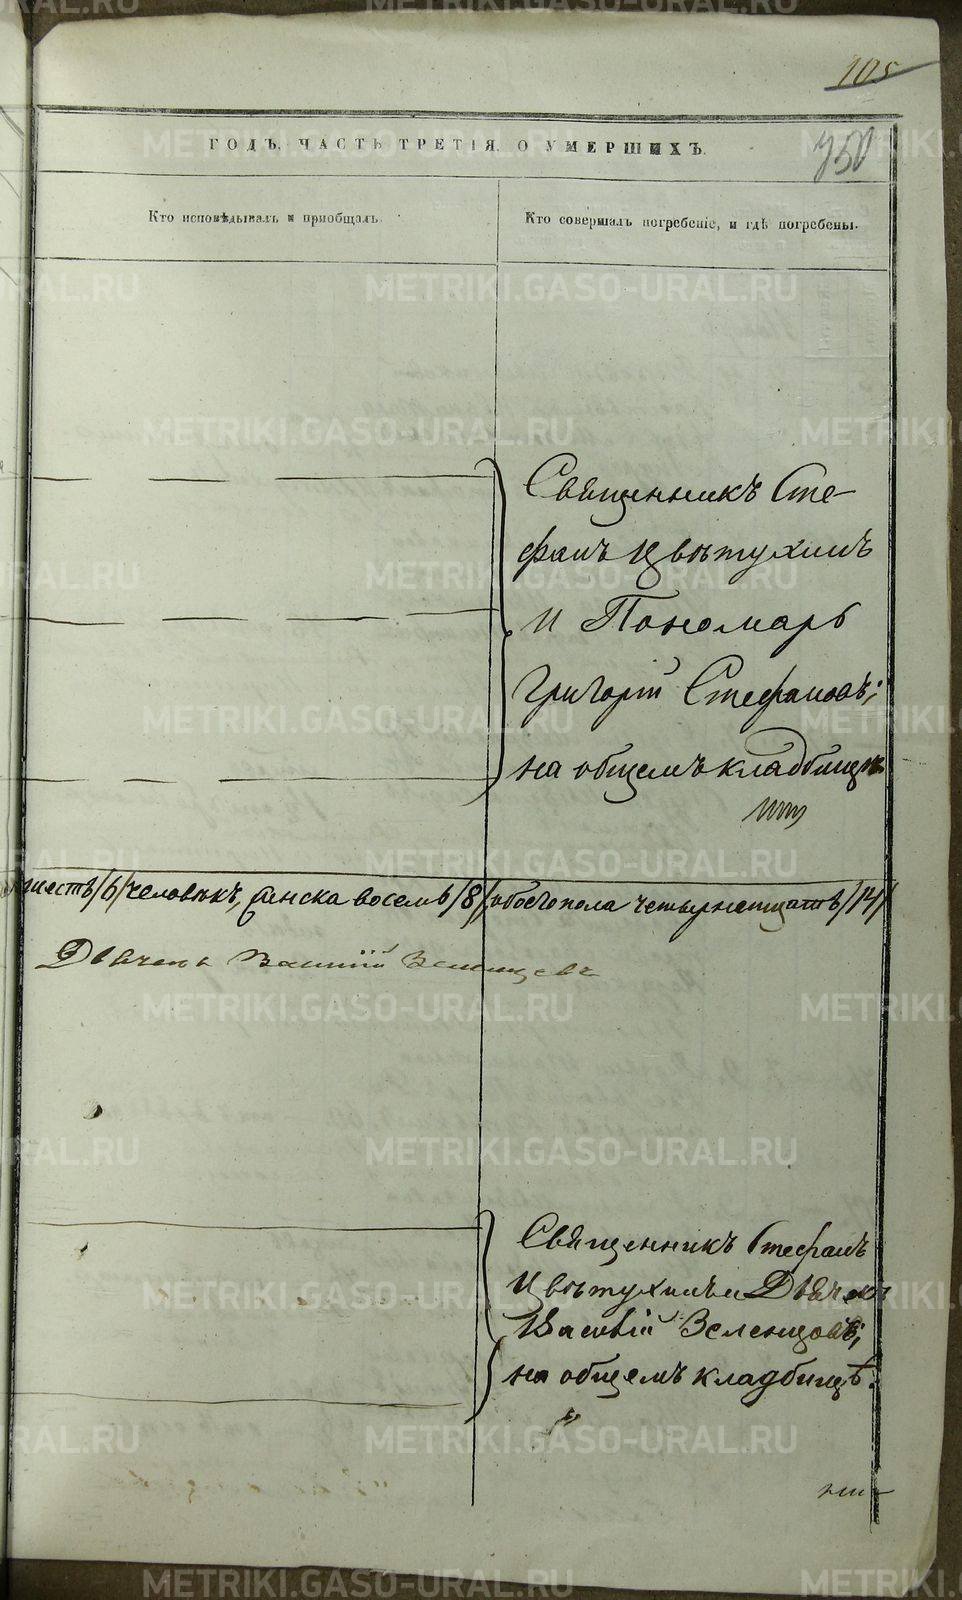 105
750
ГОДЪ. ЧАСТЬ ТРЕТІЯ. О УМЕРШИХЪ.
Кто исповѣдывалъ и пріобщалъ.
Кто совершалъ погребеніе, и гдѣ погребены.
Священникъ Сте-
фанъ Цвѣтухинъ
и Пономарь
Григорій Стефановъ;
на общемъ кладбищѣ
шесть /6/ человѣкъ, женска восемь /8/ обоего пола четырнатцать /14/
Дьячекъ Василій Зеленцовъ
Священникъ Стефанъ
Цвѣтухинъ и Дьячекъ
Василій Зеленцовъ;
на общемъ кладбищѣ.
METRIKI.GASO-URAL.RU